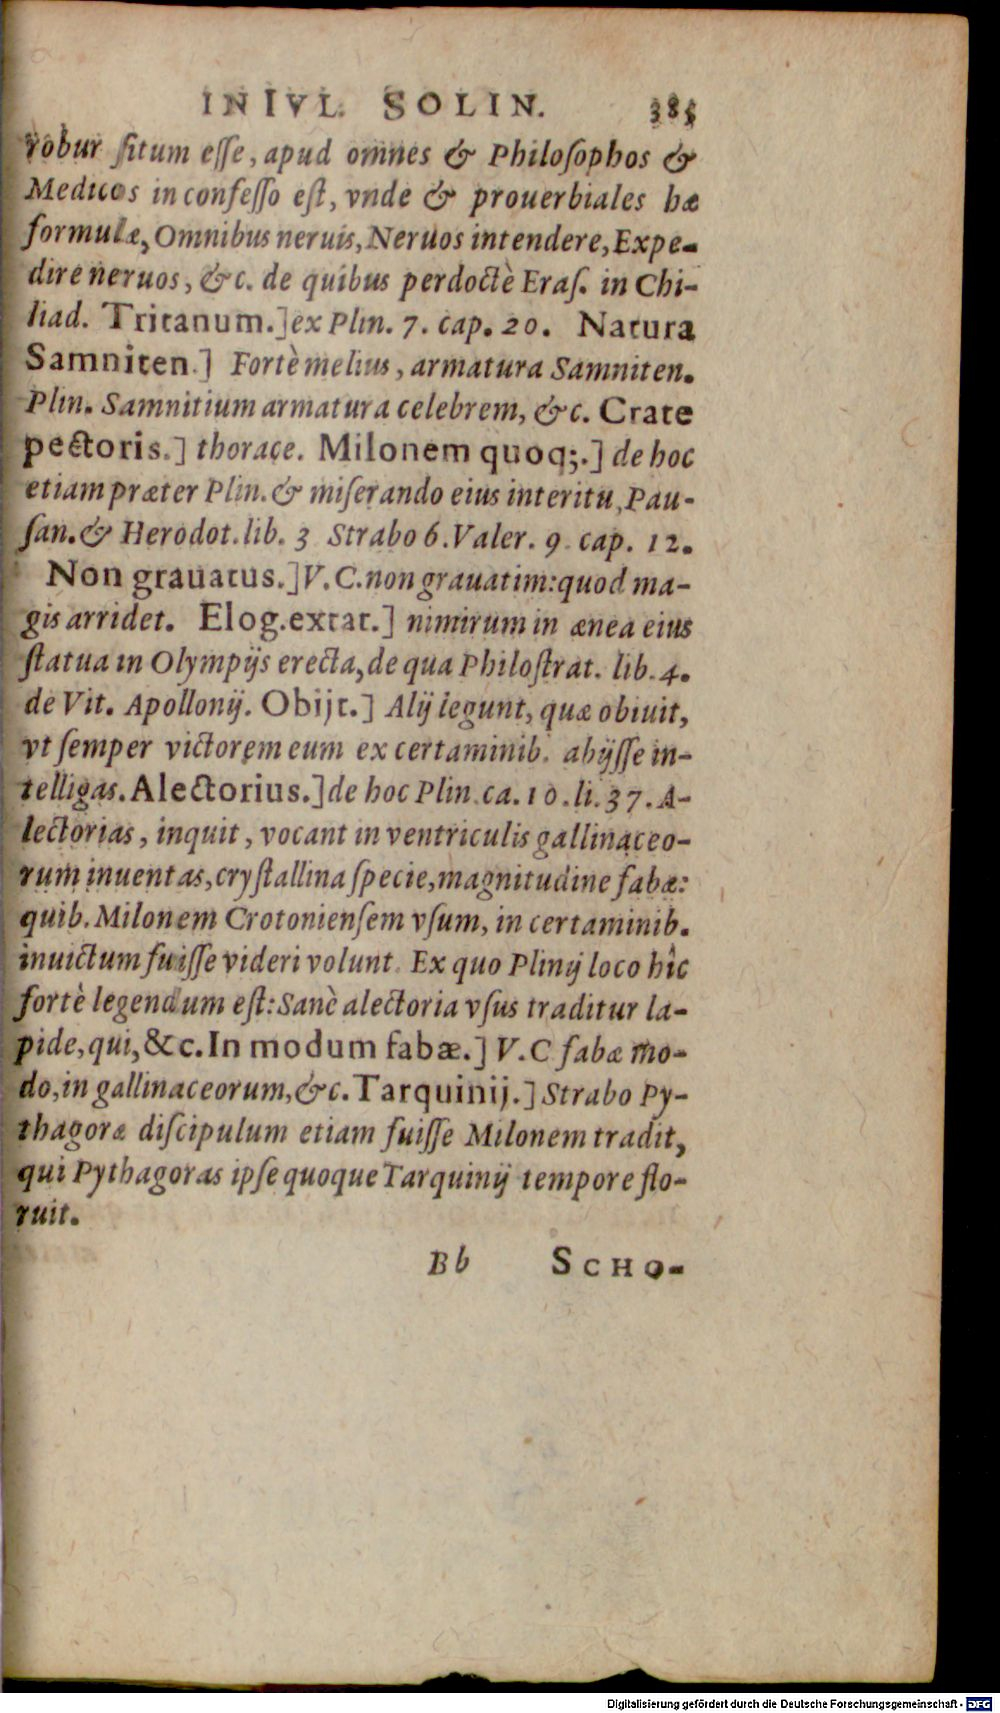 IN IVL. SOLIN. 385
robur ſitum eſſe, apud omnes & Philoſophos &
Medicos in confeſſo eſt, vnde & prouerbiales hæ
formulæ, Omnibus neruis, Neruos intendere, Expe-
dire neruos, &c. de quibus perdoctè Eraſ. in Chi-
liad. Tritanum.] ex Plin. 7. cap. 20. Natura
Samniten.] Fortè melius, armatura Samniten.
Plin. Samnitium armatura celebrem, &c. Crate
pectoris.] thorace. Milonem quoq;.] de hoc
etiam præter Plin. & miſerando eius interitu, Pau-
ſan. & Herodot. lib. 3 Strabo 6. Valer. 9. cap. 12.
Non grauatus.] V. C. non grauatim: quod ma-
gis arridet. Elog. extat.] nimirum in ænea eius
ſtatua in Olympijs erecta, de qua Philoſtrat. lib. 4.
de Vit. Apollonij. Obijt.] Alij legunt, quæ obiuit,
vt ſemper victorem eum ex certaminib. abijſſe in-
telligas. Alectorius.] de hoc Plin. ca. 10. li. 37. A-
lectorias, inquit, vocant in ventriculis gallinaceo-
rum inuentas, cryſtallina ſpecie, magnitudine fabæ:
quib. Milonem Crotonienſem vſum, in certaminib.
inuictum fuiſſe videri volunt. Ex quo Plinij loco hîc
fortè legendum eſt: Sanè alectoria vſus traditur la-
pide, qui, &c. In modum fabæ.] V. C fabæ mo-
do, in gallinaceorum, &c. Tarquinij.] Strabo Py-
thagoræ diſcipulum etiam fuiſſe Milonem tradit,
qui Pythagoras ipſe quoque Tarquinij tempore flo-
ruit.
Bb SCHO-
Digitalisierung gefördert durch die Deutsche Forschungsgemeinschaft - DFG